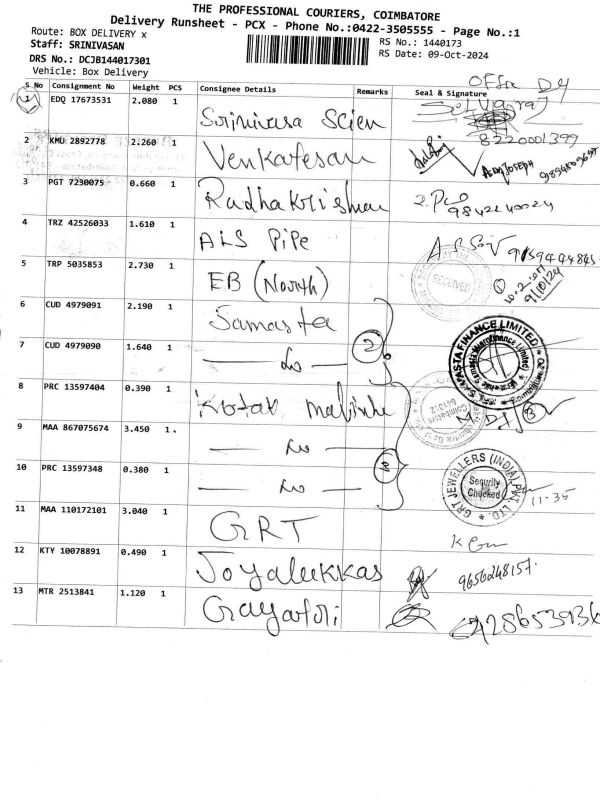 THE PROFESSIONAL COURIERS, COIMBATORE
Delivery Runsheet - PCX - Phone No.:0422-3505555 - Page No.:1
Route: BOX DELIVERY x
Staff: SRINIVASAN
DRS No.: DCJB144017301
Vehicle: Box Delivery
RS No.: 1440173
RS Date: 09-Oct-2024
S No Consignment No Weight PCS Consignee Details Remarks Seal & Signature
1 EDQ 17673531 2.080 1 Srinivasa Scien
Selvaraj
8220001399
2 KMU 2892778 2.260 1 Venkatesan
3 PGT 7230075 0.660 1 Radhakrishnan
9842240024
4 TRZ 42526033 1.610 1 ALS Pipe
5 TRP 5035853 2.730 1 EB (North)
RECEIVED
9/10/24
6 CUD 4979091 2.190 1 Samasta
2
7 CUD 4979090 1.640 1 — do —
8 PRC 13597404 0.390 1 Kotak mahindra
9 MAA 867075674 3.450 1 — do —
3
10 PRC 13597348 0.380 1 — do —
GRT JEWELLERS (INDIA) PVT. LTD.
Security Checked
11-35
11 MAA 110172101 3.040 1 GRT
12 KTY 10078891 0.490 1 Joyalukkas
9656248157
13 MTR 2513841 1.120 1 Gayatri